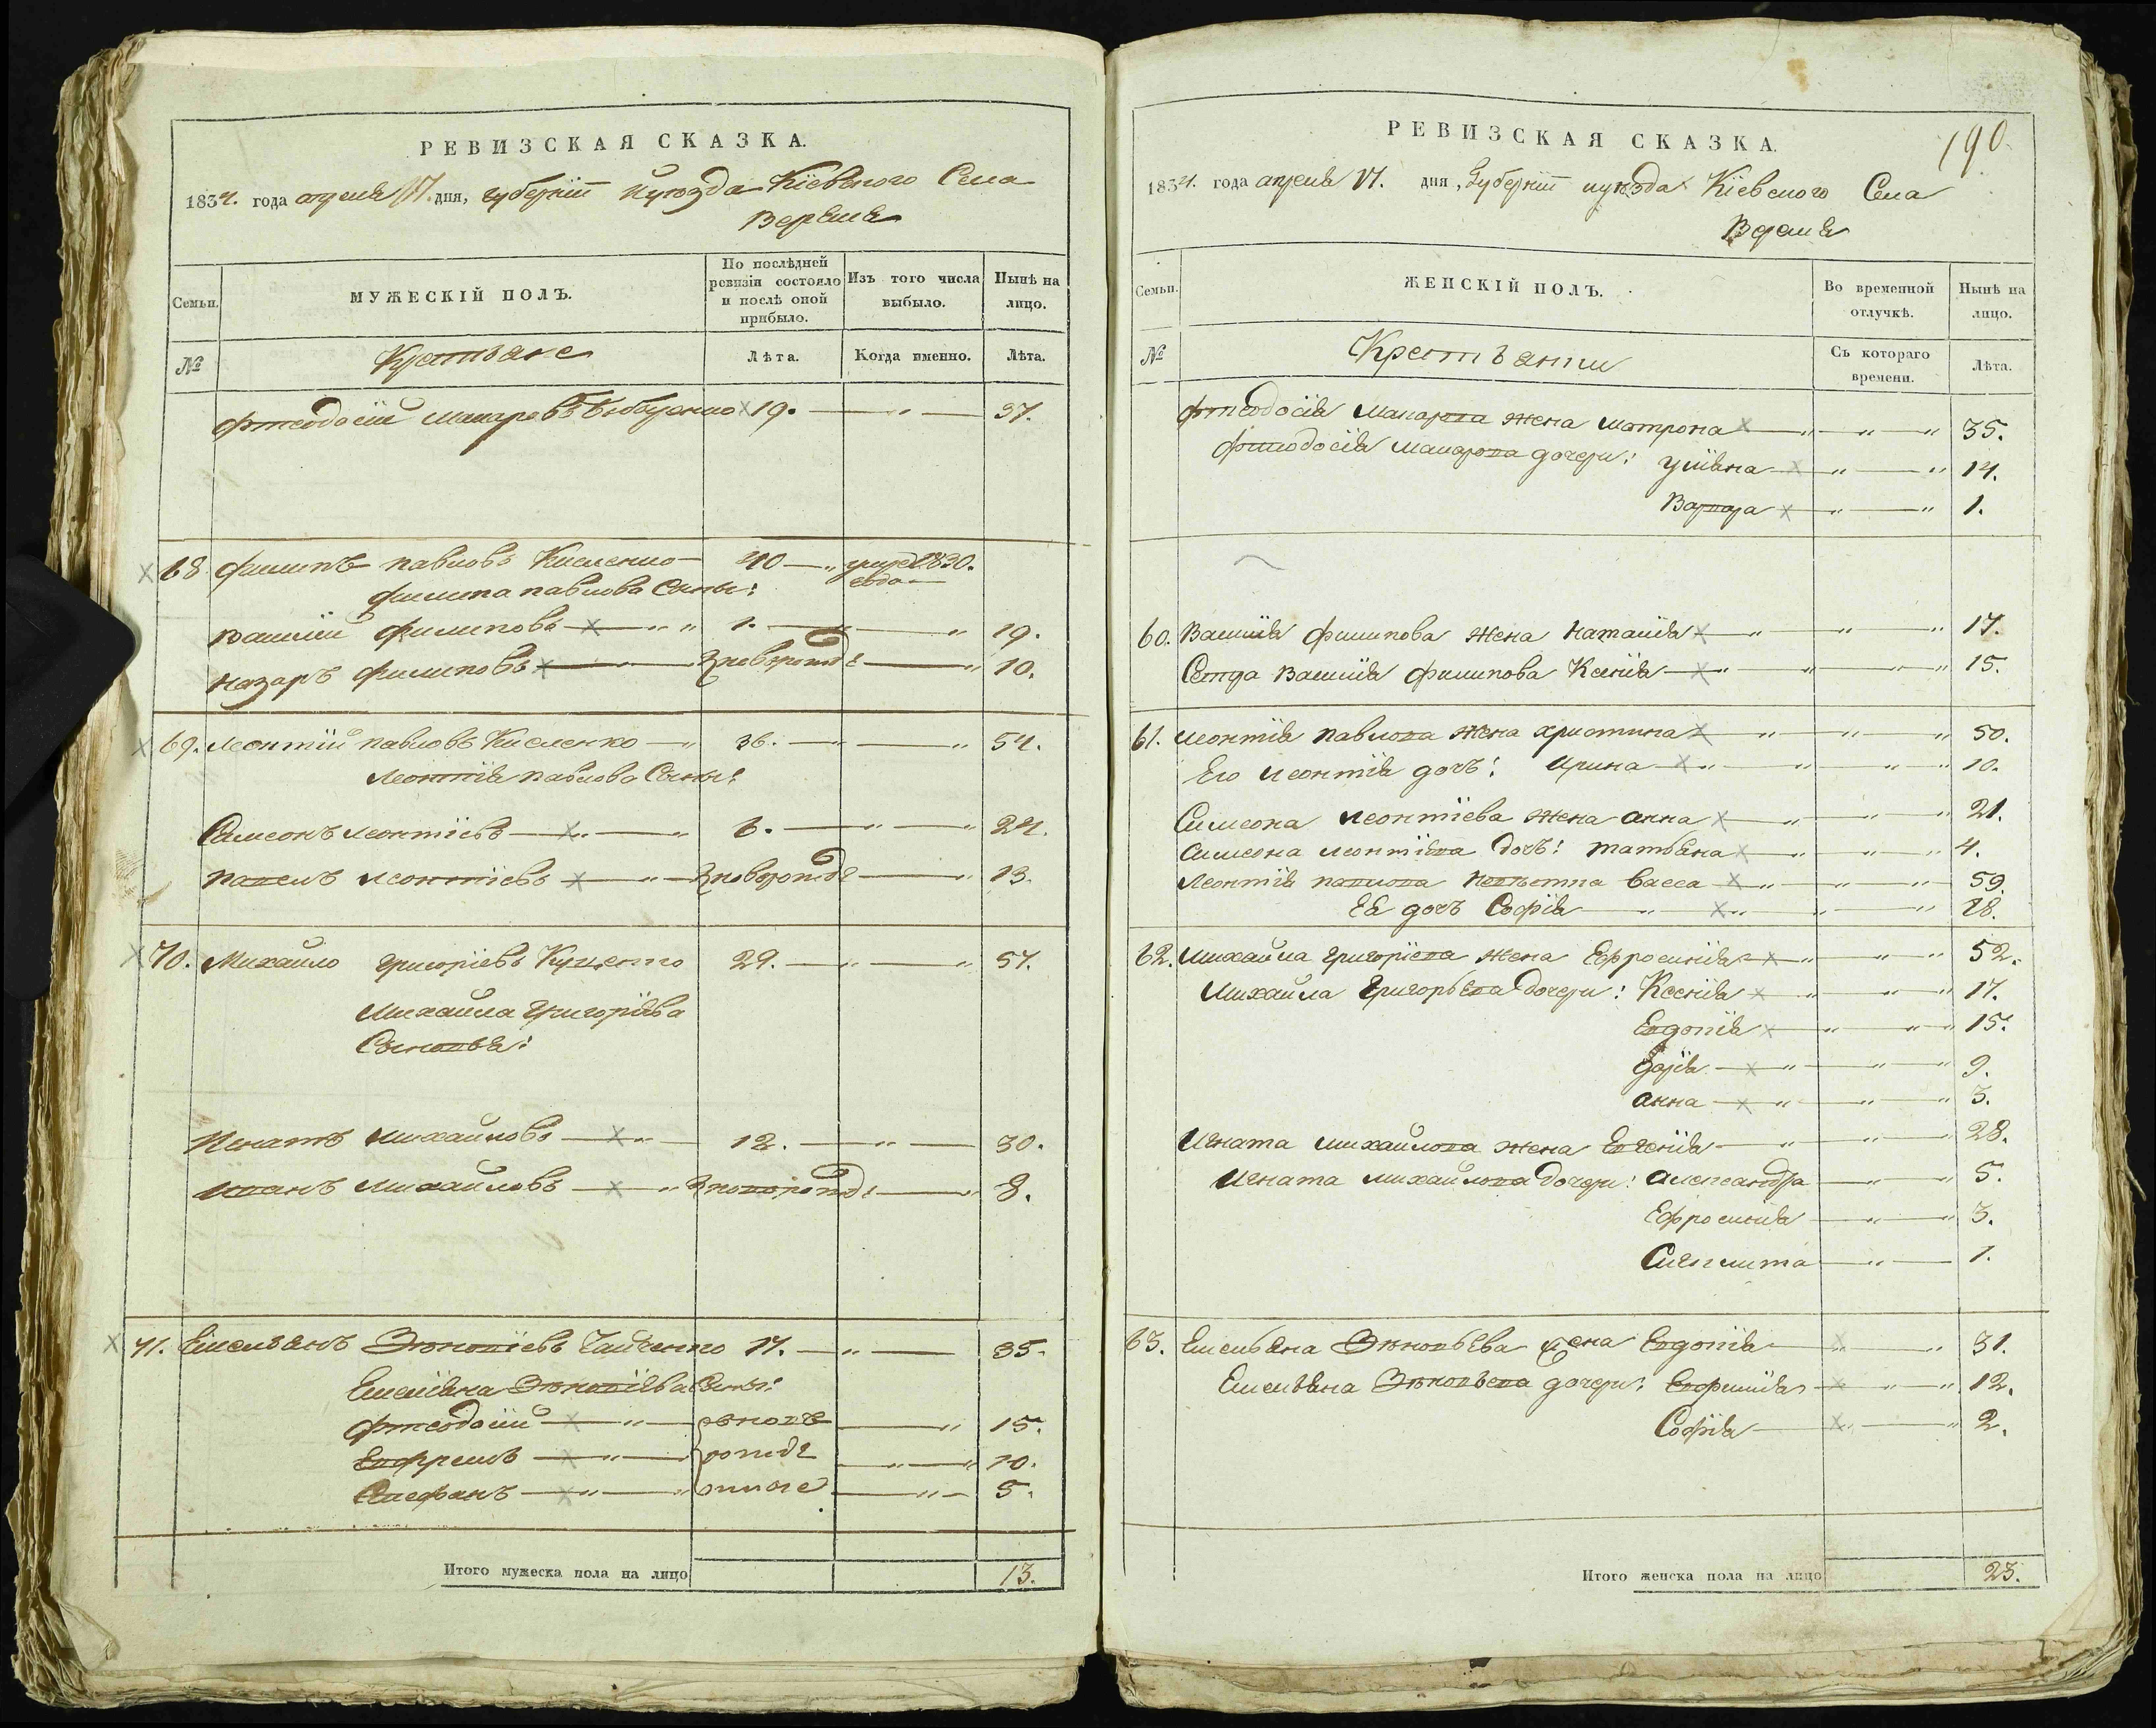 РЕВИЗСКАЯ СКАЗКА.
1834. года апреля 17. дня, губернiи и уюзда Кiевского Села
Веремя
Семьи.
МУЖЕСКІЙ ПОЛЪ.
По послѣдней ревизіи состояло и послѣ оной прибыло.
Изъ того числа выбыло.
Нынѣ на лицо.
№
Крестьяне
Лѣта.
Когда именно.
Лѣта.
Фтеодосiй Макаровъ 19. 37.
68 Филипъ Павловъ Кисленко 40 умре 1830.
года
Филипа Павлова Сыны:
Василiй Филиповъ 1. 19.
Назаръ Филиповъ 10.
69. Леонтiй Павловъ Кисленко 36. 54.
Леонтiя Павлова Сыны:
Симеонъ Леонтiевъ 6. 24.
Павелъ Леонтiевъ 13.
70. Михайло Григорiевъ 29. 57.
Михайла Григорiева
Сыновья:
Игнатъ Михайловъ 12. 30.
Иванъ Михайловъ 8.
71. Емельянъ Зѣновiевъ 17. 35.
Емелiяна Зѣновiева Сыны:
Фтеодосiй 15.
Евфремъ 10.
Стефанъ 5.
Итого мужеска пола на лицо 13.
РЕВИЗСКАЯ СКАЗКА.
190.
1834. года апреля 17. дня, Губернiи и уюзда Кiевского Села
Веремя
Семьи.
ЖЕНСКІЙ ПОЛЪ.
Во временной отлучкѣ.
Нынѣ на лицо.
№
Крестьянки
Съ котораго времени.
Лѣта.
Фтеодосiя Макарова жена Матрона 35.
Фтеодосiя Макарова дочери: Улiяна 14.
Варвара 1.
60. Василiя Филипова жена Наталiя 17.
Сестра Василiя Филипова Ксенiя 15.
61. Леонтiя Павлова жена Христина 50.
Его Леонтiя дочь: Ирина 10.
Симеона Леонтiева жена Анна 21.
Симеона Леонтiева дочь: Татьяна 4.
Леонтiя Павлова Невѣстка Васса 59.
Ея дочь Софiя 28.
62. Михайла Григорiева жена Ефросинiя 52.
Михайла Григорьева дочери: Ксенiя 17.
Евдокiя 15.
Дарiя 9.
Анна 3.
Игната Михайлова жена Евгенiя 28.
Игната Михайлова дочери: Александра 5.
Ефросинiя 3.
1.
63. Емельяна Зѣновьева жена Евдокiя 31.
Емельяна Зѣновьева дочери: Евфимiя 12.
Софiя 2.
Итого женска пола на лицо 23.